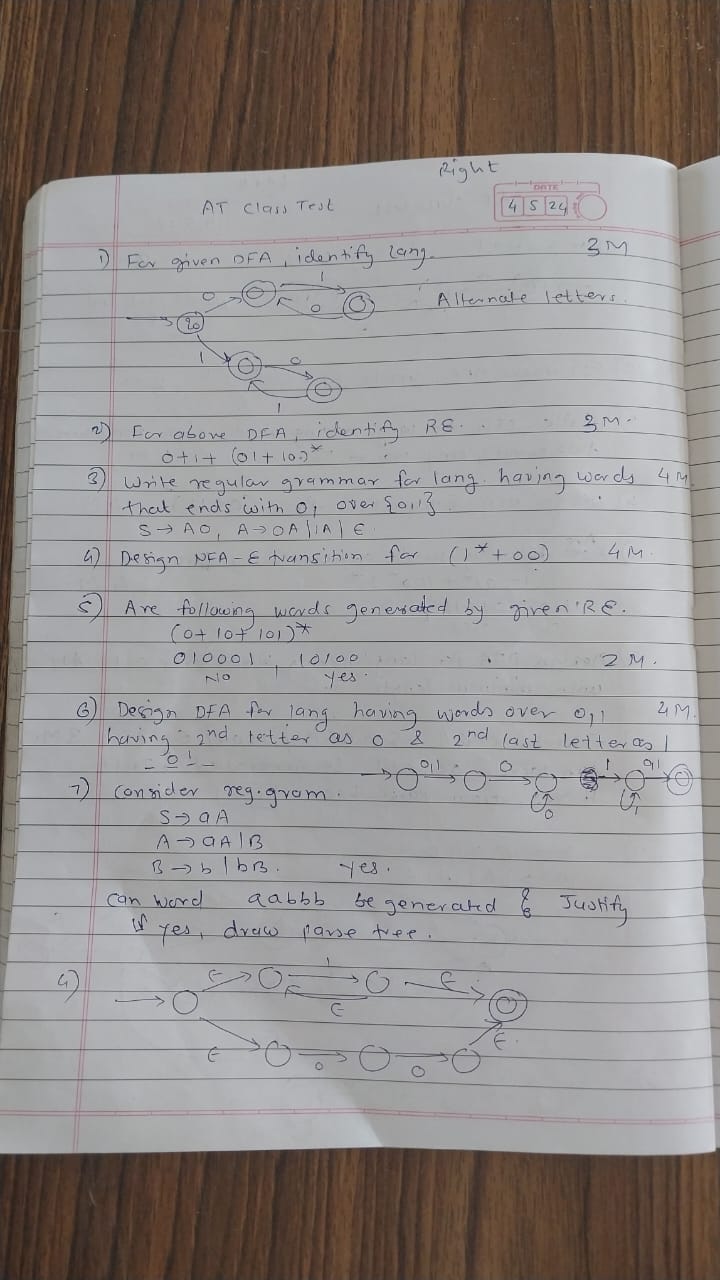 Right
AT Class Test
DATE
4 5 24
1) For given DFA, identify lang. 3M
0 1 0
Alternate letters.
q0
1 0
1
2) For above DFA, identify RE. 3M.
0+1+ (01+10)*
3) Write regular grammar for lang. having words 4M
that ends with 0, over {0,1}
S → A0, A → 0A | 1A | ε
4) Design NFA-ε transition for (1*+00) 4M.
5) Are following words generated by given RE.
(0+10+101)*
010001, 10100 2M.
No yes.
6) Design DFA for lang having words over 0,1 4M.
having 2nd letter as 0 & 2nd last letter as 1
- 0 1 -
0,1 0 1 0,1
0 1
7) Consider reg. gram.
S → aA
A → aA | B
B → b | bB. yes.
Can word aabbb be generated & Justify
If yes, draw parse tree.
4)
ε 1 ε
ε
ε 0 0 ε